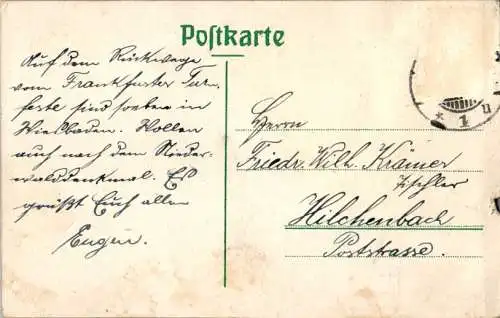 Postkarte
Auf dem Rückwege
vom Frankfurter Turn-
feste sind soeben in
Wiesbaden. Wollen
auch nach dem Nieder-
walddenkmal. Es
grüßt Euch allen
Eugen.
Herrn
Friedr. Wilh. Krämer
Tischler
Hilchenbach
Poststrasse.
* 1 u